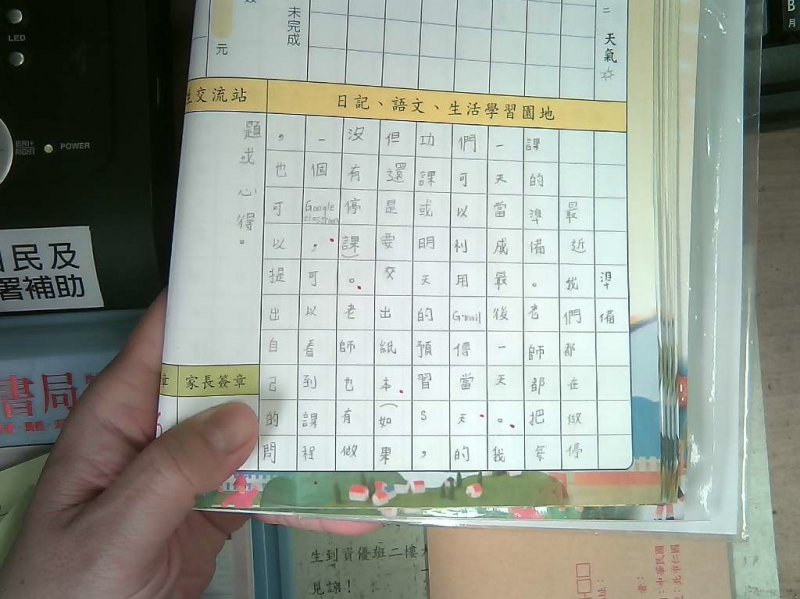 元
未完成
二
天氣
生交流站
日記、語文、生活學習園地
準備
最近我們都在做停
課的準備。老師都把每
一天當成最後一天。我
們可以利用Gmail傳當天的
功課或明天的預習s，
但還是要交出紙本.(如果
沒有停課)。老師也有做
一個Google classroom，可以看到課程
，也可以提出自己的問
題或心得。
家長簽章
章
LED
BRI+
RIGHT
POWER
民及
署補助
書局
生到資優班二樓
見諒！
月